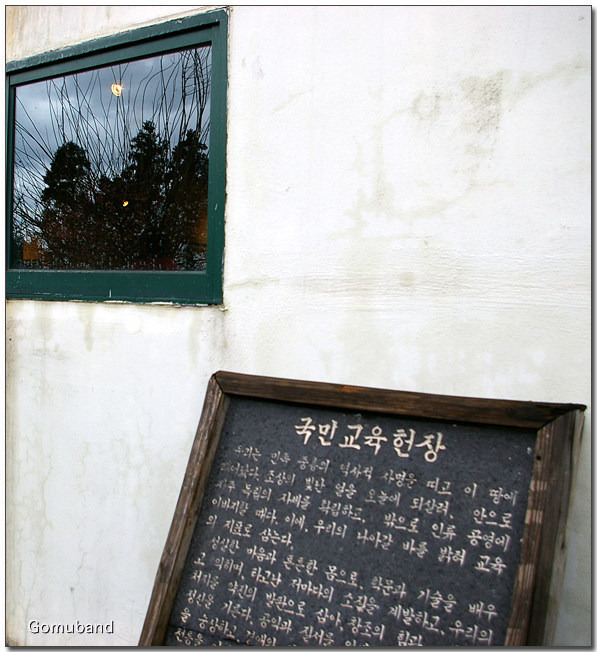 국민교육헌장
우리는 민족 중흥의 역사적 사명을 띠고 이 땅에
태어났다. 조상의 빛난 얼을 오늘에 되살려 안으로
자주 독립의 자세를 확립하고, 밖으로 인류 공영에
이바지할 때다. 이에, 우리의 나아갈 바를 밝혀 교육
의 지표로 삼는다.
성실한 마음과 튼튼한 몸으로, 학문과 기술을 배우
고 익히며, 타고난 저마다의 소질을 계발하고, 우리의
처지를 약진의 발판으로 삼아 창조의 힘과
정신을 기른다. 공익과 질서를
을 숭상하고,
전통을
Gomuband